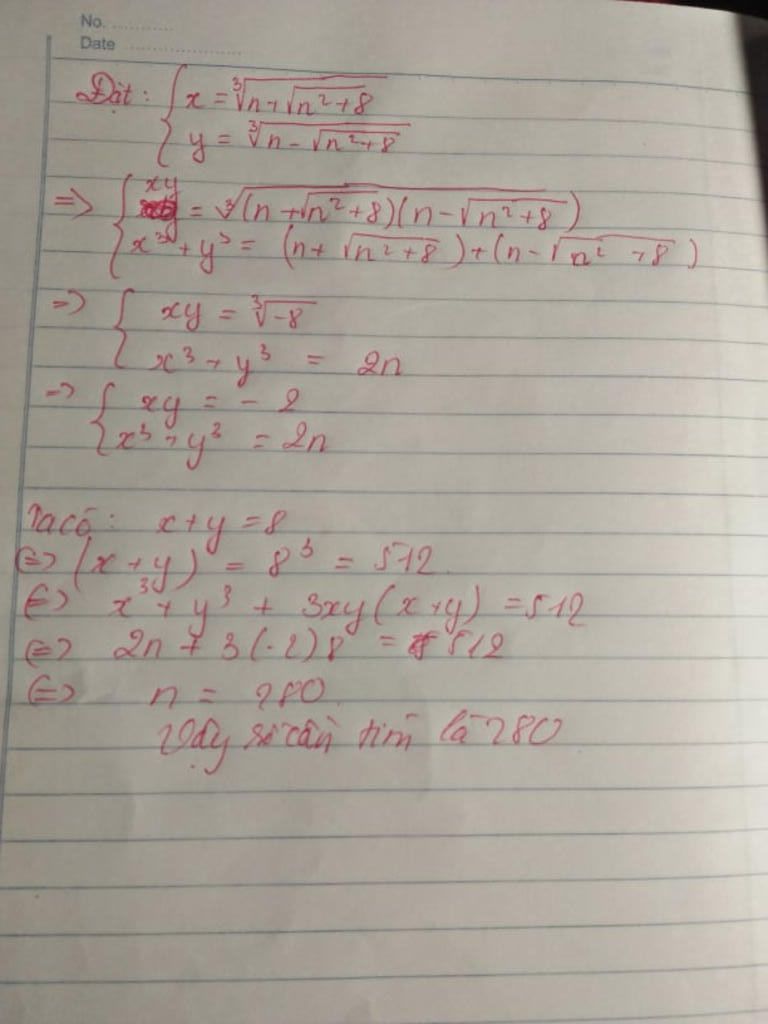 No. ............
Date .....................
Đặt : { x = ∛(n + √(n² + 8))
y = ∛(n - √(n² + 8))
=> { xy = ∛((n + √(n² + 8))(n - √(n² + 8)))
x³ + y³ = (n + √(n² + 8)) + (n - √(n² + 8))
=> { xy = ∛(-8)
x³ + y³ = 2n
=> { xy = - 2
x³ + y³ = 2n
Ta có : x + y = 8
<=> (x + y)³ = 8³ = 512
<=> x³ + y³ + 3xy(x + y) = 512
<=> 2n + 3(-2)8 = 512
<=> n = 280.
Vậy số cần tìm là 280